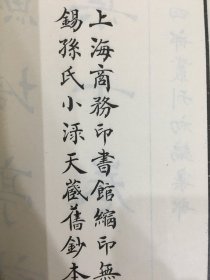 上海商務印書館縮印無
錫孫氏小渌天藏舊鈔本